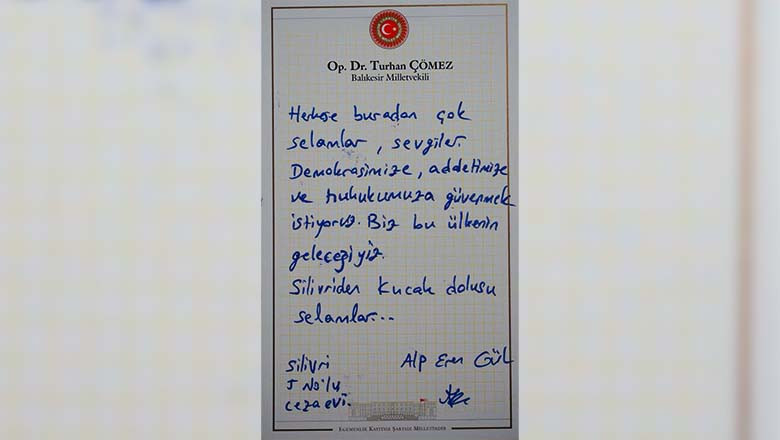 Op. Dr. Turhan ÇÖMEZ
Balıkesir Milletvekili
Herkese buradan çok
selamlar, sevgiler.
Demokrasimize, addetimize
ve hukukumuza güvenmek
istiyoruz. Biz bu ülkenin
geleceğiyiz.
Silivriden kucak dolusu
selamlar...
Silivri
Alp Eren GÜL
J No'lu
cezaevi.
EGEMENLİK KAYITSIZ ŞARTSIZ MİLLETİNDİR